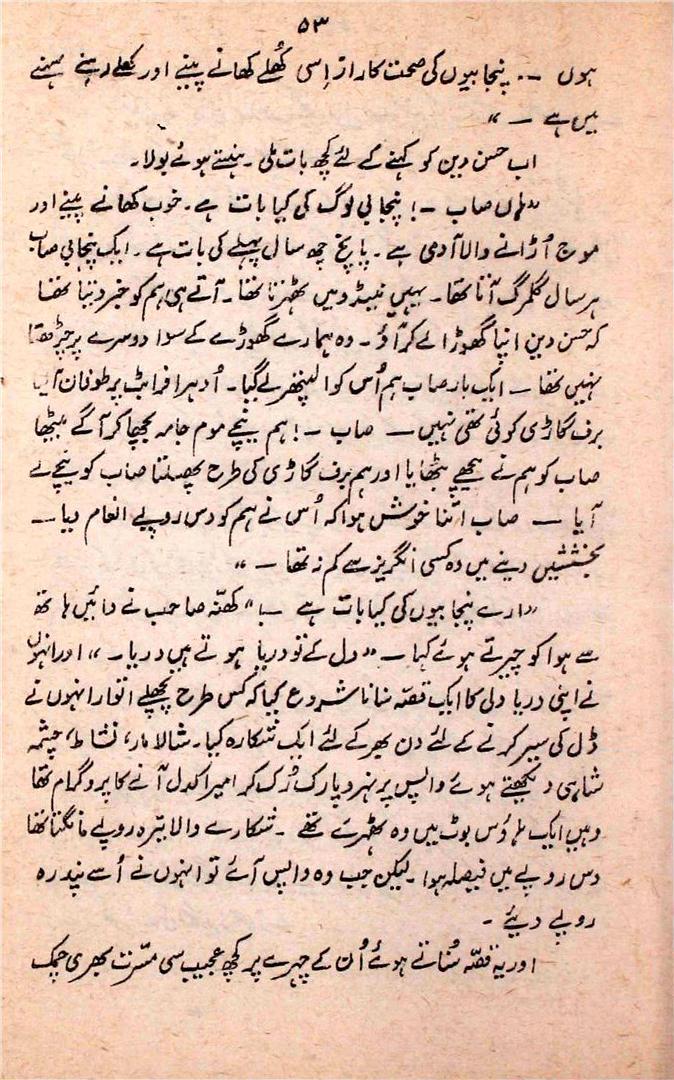 ۵۳
ہوں ۔۔ پنجابیوں کی صحت کا راز اِسی کُھلے کھانے پینے اور کھلے رہنے سہنے
میں ہے ۔ "
اب حسن دین کو کہنے کے لئے کچھ بات ملی ۔ ہنستے ہوئے بولا ۔
"ہاں صاب ۔! پنجابی لوگ کی کیا بات ہے ۔ خوب کھانے پینے اور
موج اُڑانے والا آدمی ہے ۔ پانچ چھ سال پہلے کی بات ہے ۔ ایک پنجابی صاب
ہر سال گلمرگ آتا تھا ۔ یہیں نیڈو میں ٹھہرتا تھا ۔ آتے ہی ہم کو خبر دیتا تھا
کہ حسن دین اپنا گھوڑا لے کر آؤ ۔ وہ ہمارے گھوڑے کے سوا دوسرے پر چڑھتا
نہیں تھا ۔ ایک بار صاب ہم اُس کو الپتھر لے گیا ۔ اُدہر افراہٹ پر طوفان آیا
برف گاڑی کوئی تھی نہیں ۔ صاب ۔! ہم نیچے موم جامہ بچھا کر آگے بیٹھا
صاب کو ہم نے پیچھے بٹھایا اور ہم برف گاڑی کی طرح پھسلتا صاب کو نیچے لے
آیا ۔ صاب اتنا خوش ہوا کہ اُس نے ہم کو دس روپیے انعام دیا ۔
بخششیں دینے میں وہ کسی انگریز سے کم نہ تھا ۔ "
"ارے پنجابیوں کی کیا بات ہے ۔! " کھنّہ صاحب نے دائیں ہاتھ
سے ہوا کو چیرتے ہوئے کہا ۔ " دل کے تو دریا ہوتے ہیں دریا ۔ " اور انہوں
نے اپنی دریا دلی کا ایک قصّہ سنانا شروع کیا کہ کس طرح پچھلے اتوار انہوں نے
ڈل کی سیر کرنے کے لئے دن بھر کے لئے ایک شکارہ کیا ۔ شالامار، نشاط، چشمہ
شاہی دیکھتے ہوئے واپس پر نہرو پارک رُک کر امیراکدل آنے کا پروگرام تھا
وہیں ایک ہاؤس بوٹ میں وہ ٹھہرے تھے ۔ شکارے والا تیرہ روپلے مانگتا تھا
دس روپے میں فیصلہ ہوا ۔ لیکن جب وہ واپس آئے تو انہوں نے اُسے پندرہ
روپے دیئے ۔
اور یہ قصّہ سُناتے ہوئے اُن کے چہرے پر کچھ عجیب سی مسّرت بھری چمک